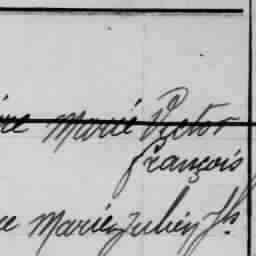 Marie Victor
François
Marie Julien